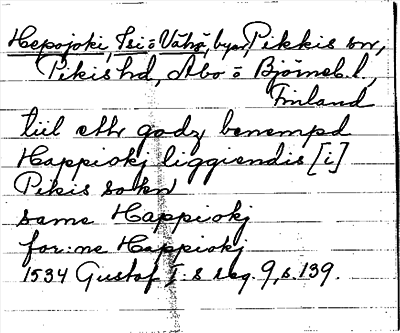 Hepojoki, Isi ō Vähä, byar Pikkis sn,
Pikis hd, Åbo ō Björneb. l.,
Finland
till ett godz benempd
Happiokj liggiendis [i]
Pikis sokn
same Happiokj
for:ne Happiokj
1534 Gustaf I:s reg. 9, s. 139.